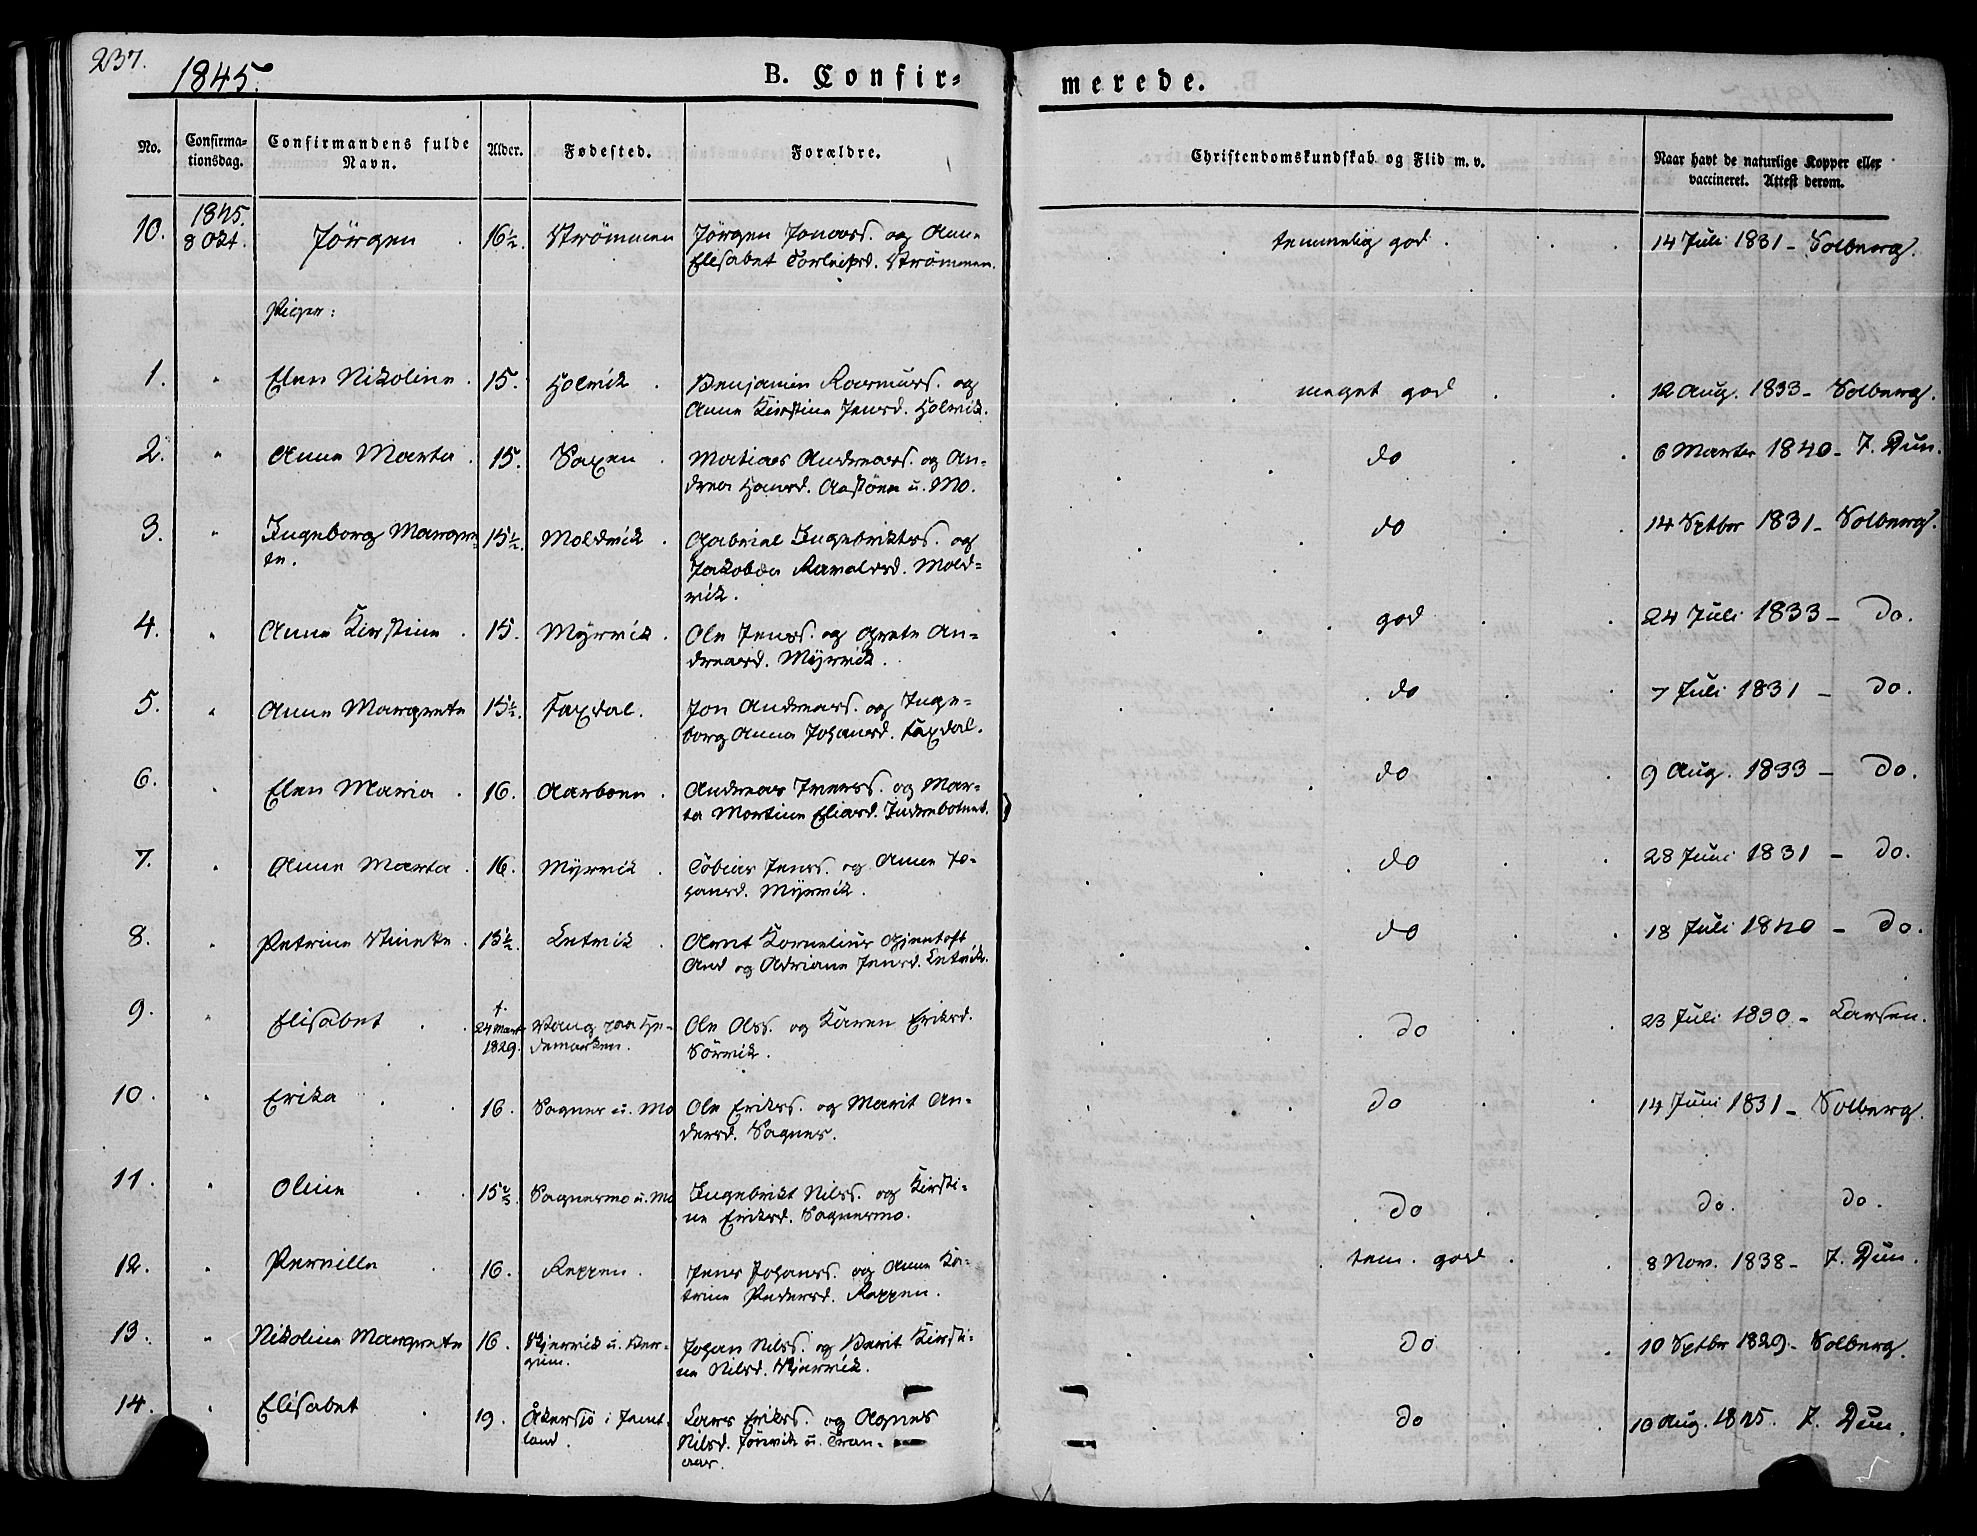 237.
1845.
B. Confir=
merede.
No.
Confirma-
tionsdag.
Confirmandens fulde
Navn.
Alder.
Fødested.
Forældre.
Christendomskundskab og Flid m. v.
Naar havt de naturlige Kopper eller
vaccineret. Attest derom.
10. 1845. 8 Okt. Jörgen 16½. Strömmen Jörgen Jonass. og Ann=
Elisabet Torleifsd. Strömmen. temmelig god. 14 Juli 1831 - Solberg.
Piger:
1. " Elen Nikoline. 15. Holvik. Benjamin Rasmuss. og
Anne Kirstine Jensd. Holvik. meget god 12 Aug. 1833 - Solberg.
2. " Anne Marta. 15. Saxen. Matias Andreass. og An=
drea Hansd. Aastöen u. Mo. do 6 Marts 1840 - J. Dun.
3. " Ingeborg Margre=
te. 15½. Moldvik. Gabriel Ingebrikts. og
Jakobea Ravaldsd. Mold=
vik. do 14 Septbr 1831 - Solberg.
4. " Anne Kirstine. 15. Myrvik. Ole Jenss. og Grete An=
dreasd. Myrvik. god 24 Juli 1833 - do.
5. " Anne Margrete 15½. Faxdal. Jon Andreass. og Inge=
borg Anna Johansd. Faxdal. do 7 Juli 1831 - do.
6. " Elen Maria. 16. Aarboen. Andreas Iverss. og Mar=
ta Martine Eliasd. Inderbotnet. do 9 Aug. 1833 - do.
7. " Anne Marta. 16. Myrvik. Tobias Jenss. og Anne Jo=
hansd. Myrvik. do 28 Juni 1831 - do.
8. " Petrine Vineke. 15½. Letvik. Arnt Kornelius Gjentoft
And og Adriane Jensd. Letvik. do 18 Juli 1840 - do.
9. " Elisabet f.
24 Marts
1829. Vang paa He=
demarken. Ole Olss. og Karen Eriksd.
Sörvik. do 23 Juli 1830 - Larsen.
10. " Erika 16. Sagnes u. Mo Ole Erikss. og Marit An=
dersd. Sagnes. do 14 Juni 1831 - Solberg.
11. " Oline 15⅔. Sagnesmo u. Mo Ingebrikt Nilss. og Kirsti=
ne Eriksd. Sagnesmo. do do. do.
12. " Pernille 16. Reppen. Jens Johanss. og Anne Ka=
trine Pedersd. Reppen. tem. god 8 Nov. 1838 - J. Dun.
13. " Nikolina Margrete 16. Skjervik u. Ber=
gum. Johan Nilss. og Berit Kirsti=
ne Nilsd. Skjervik. do 10 Septbr 1829 - Solberg.
14. " Elisabet 19. Åkersjö i Jemt=
land. Lars Erikss. og Agnes
Nilsd. Jönvik u. Tran=
aas. do 10 Aug. 1845. J. Dun.